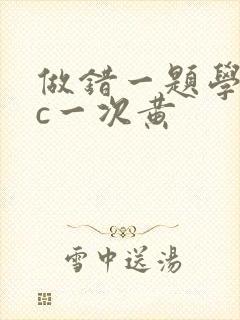 做錯一題學
c一次黃
雪中送湯